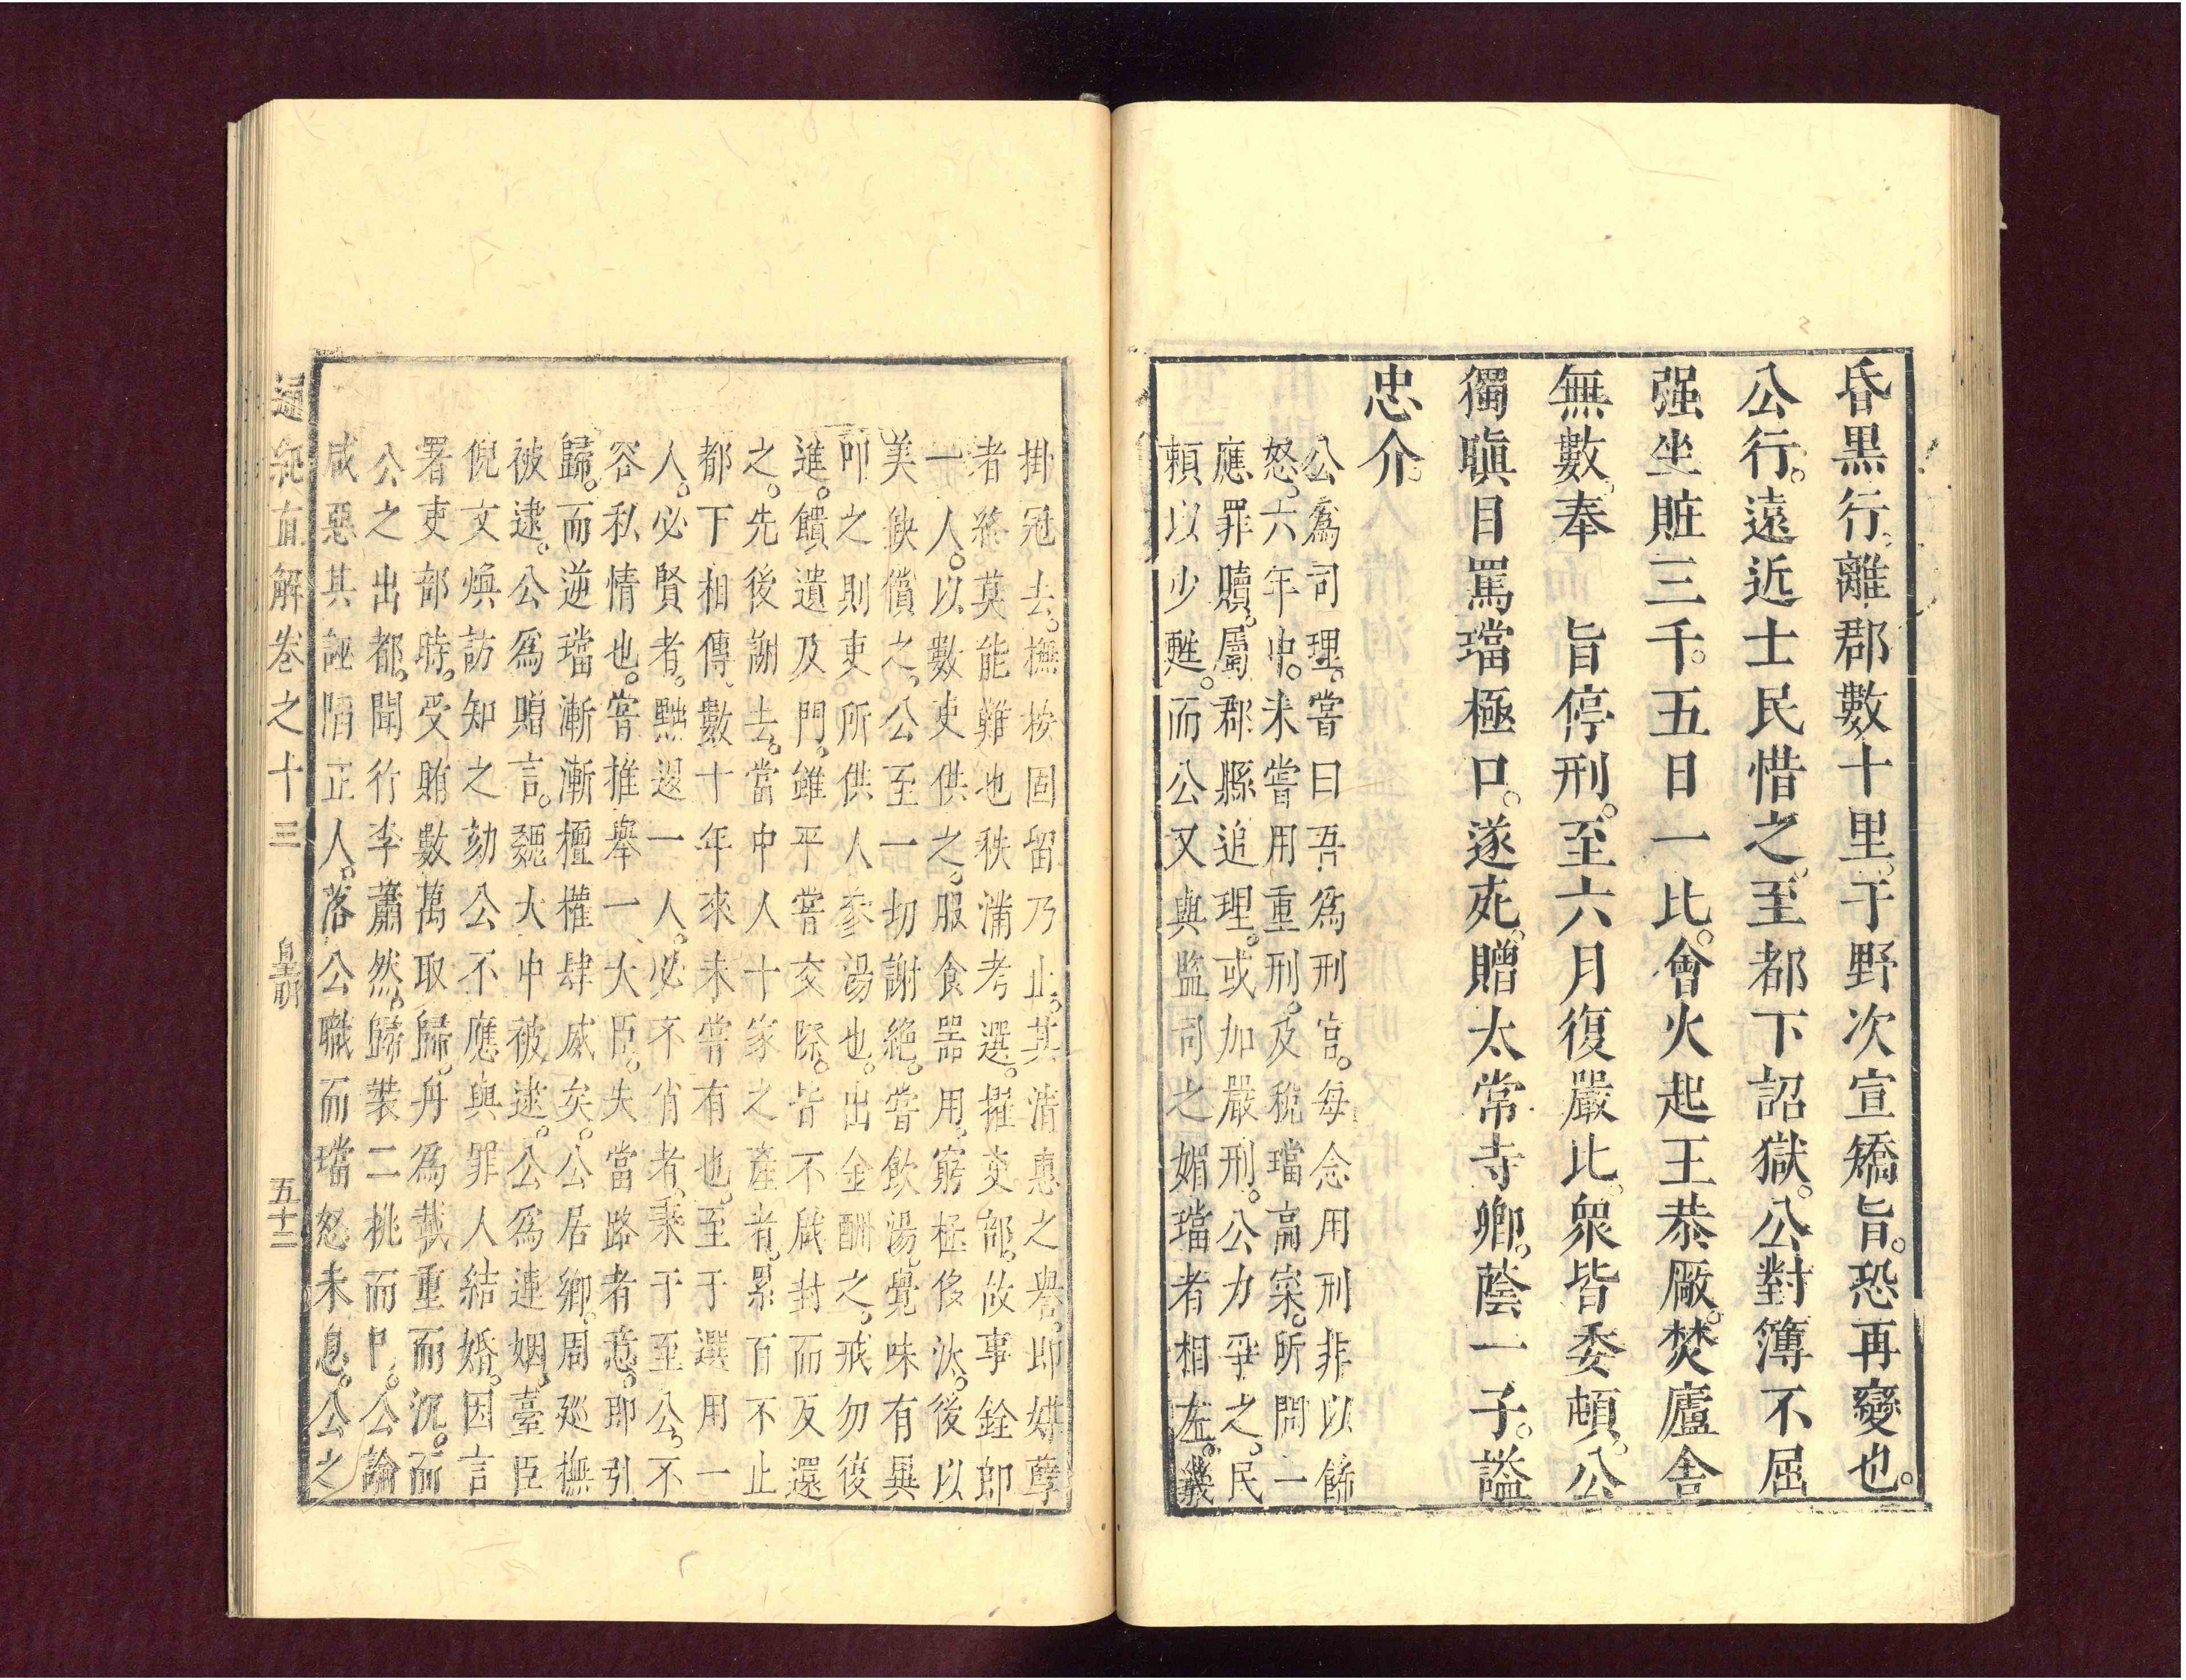 昏黑行。離郡數十里。于野次宣矯旨。恐再變也。
公行。遠近士民惜之。至都下詔獄。公對簿不屈
强坐贓三千。五日一比。會火起王恭厰。焚廬舍
無數。奉　旨停刑。至六月復嚴比。衆皆委頓。公
獨瞋目罵璫極口。遂死。贈太常寺卿。蔭一子。謚
忠介。
公爲司理。嘗曰吾爲刑官。每念用刑非以飾
怒。六年中。未嘗用重刑。及稅璫高寀。所問一
應罪贖。屬郡縣追理。或加嚴刑。公力爭之。民
頼以少甦。而公又與監司之媚璫者相左。幾
掛冠去。撫按固留乃止。其清惠之譽。即媒孽
者終莫能難也秩滿考選。擢吏部。故事銓郎
一人。以數吏供之。服食器用。窮極侈汰。後以
美缺償之。公至一切謝絶。嘗飲湯。覺味有異
叩之則吏所供人參湯也。出金酬之。戒勿復
進。饋遺及門。雖平嘗交際。皆不啟封而反還
之。先後謝去。當中人十家之產者。累百不止
都下相傳。數十年來未嘗有也。至于選用一
人。必賢者。黜退一人。必不肖者。秉于至公。不
容私情也。嘗推舉一大臣。失當路者意。即引
歸。而逆璫漸漸檀權肆威矣。公居鄉。周廵撫
被逮。公爲贈言。魏大中被逮。公爲連姻。臺臣
倪文煥訪知之。劾公不應與罪人結婚。因言
署吏部時。受賄數萬取歸。舟爲載重而沉。而
公之出都。聞行李蕭然。歸裝二挑而𨳇。公論
咸惡其誣陷正人。落公職而璫怒未息。公之
通紀直解卷之十三　皇明　五十二